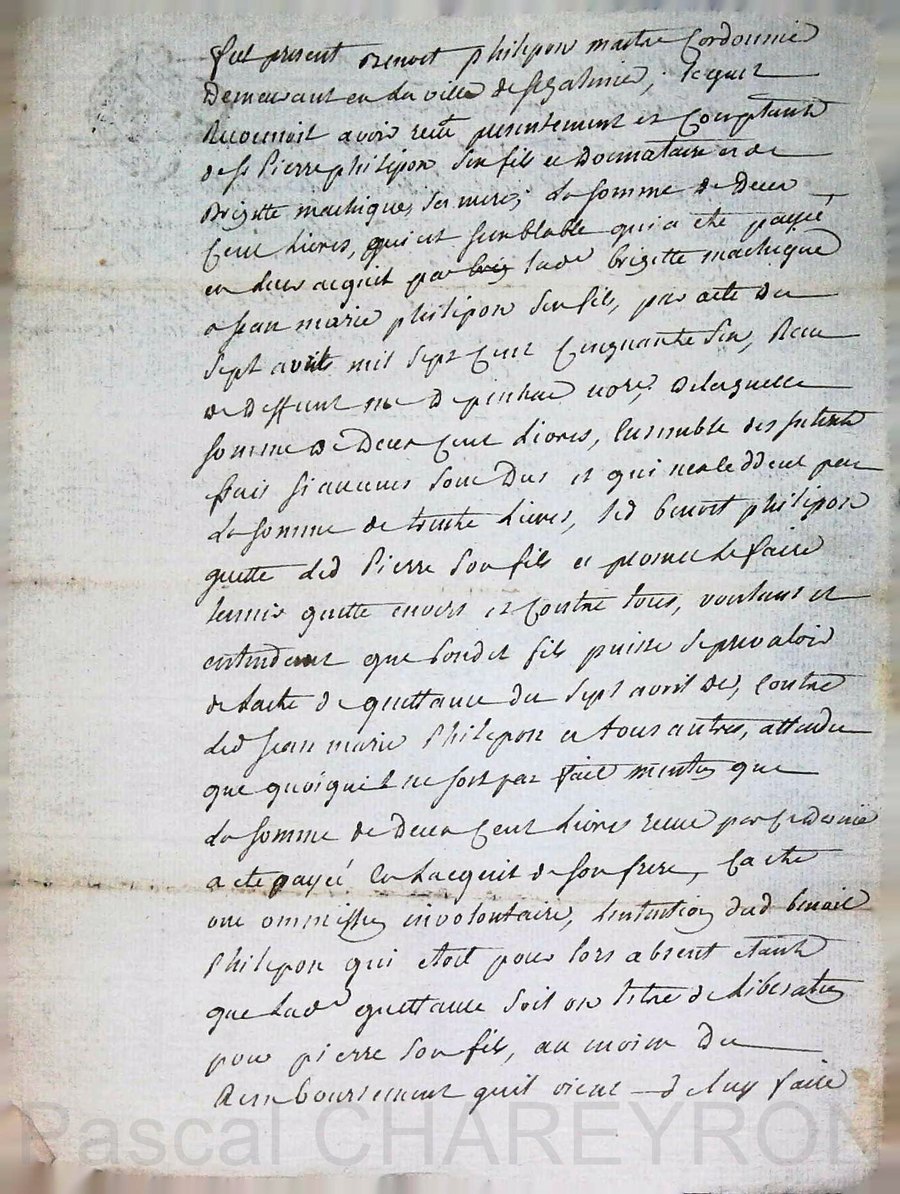 fut present Benoit philipon maitre Cordonnier
Demeurant en la ville de st galmier, lequel
Reconnoit avoir recû presentement et Comptant
de sr Pierre philipon son fils et Donnataire et de
Brigitte machique, ses mere, la somme de Deux
Cent Livres, qui est semblable qui a ete payée
en leur acquit par lade brigitte machique
a Jean marie philipon son fils, par acte du
sept avril mil sept Cent Cinquante six, Reçu
de Deffunt me De nore, De laquelle
somme De Deux Cent Livres, Ensemble des jnterets
frais si aucuns sont Dus et qui nexceddent pas
La somme de trente Livres, led benoit philipon
quitte led Pierre son fils et promet le faire
tenir quitte envers et Contre tous, voulant et
entendant que sondet fils puisse se prevaloir
de lacte de quittance du sept avril de, Contre
led Jean marie Philipon et tous autres, attendu
que quoique il ne soit pas fait mention que
La somme de Deux Cent Livres reçue par Ce dernier
a ete payée En Lacquit de son frere, Ca ete
une ommission involontaire, Lintention dud benoit
Philipon qui etoit pour lors absent etant
que lade quittance soit un titre de Liberation
pour pierre son fils, au moien Du
Remboursement quil vient de luy faire
Pascal CHAREYRON